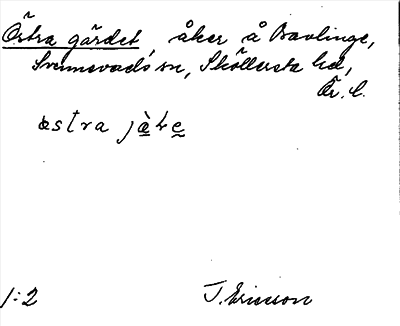 Östra gärdet, åker å Bavlinge,
Svennevads sn, Sköllersta hd,
Ör. l.
østra jæ̀ɫe
1:2 J. Ericsson